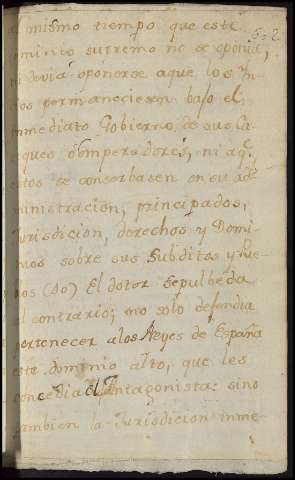 al mismo tiempo que este
ominio supremo no se oponia,
ni devia oponerse aque los Yn-
ios permaneciesen bajo el
inmediato Gobierno de sus Ca-
iques ò emperadores, ni aq.e
estos se conserbasen en su ad-
ministracion, principados,
Jurisdicion, derechos y Domi-
nios sobre sus Subditos y Pue-
los (40) El dotor Sepulbeda
al contrario; no solo defendia
pertenecer alos Reyes de España
este dominio alto, que les
concedia el Antagonista: sino
tambien la Jurisdicion inme-